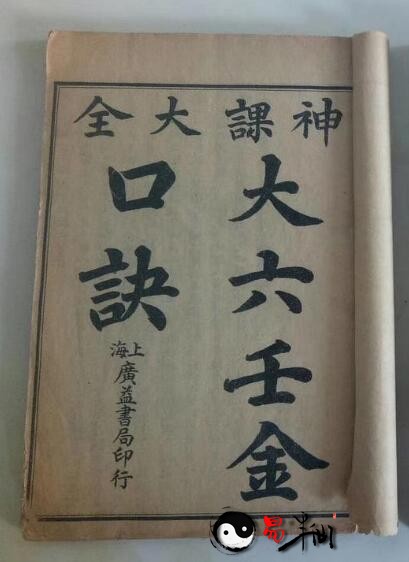 神課大全
大六壬金
口訣
上海
廣益書局印行
易半仙